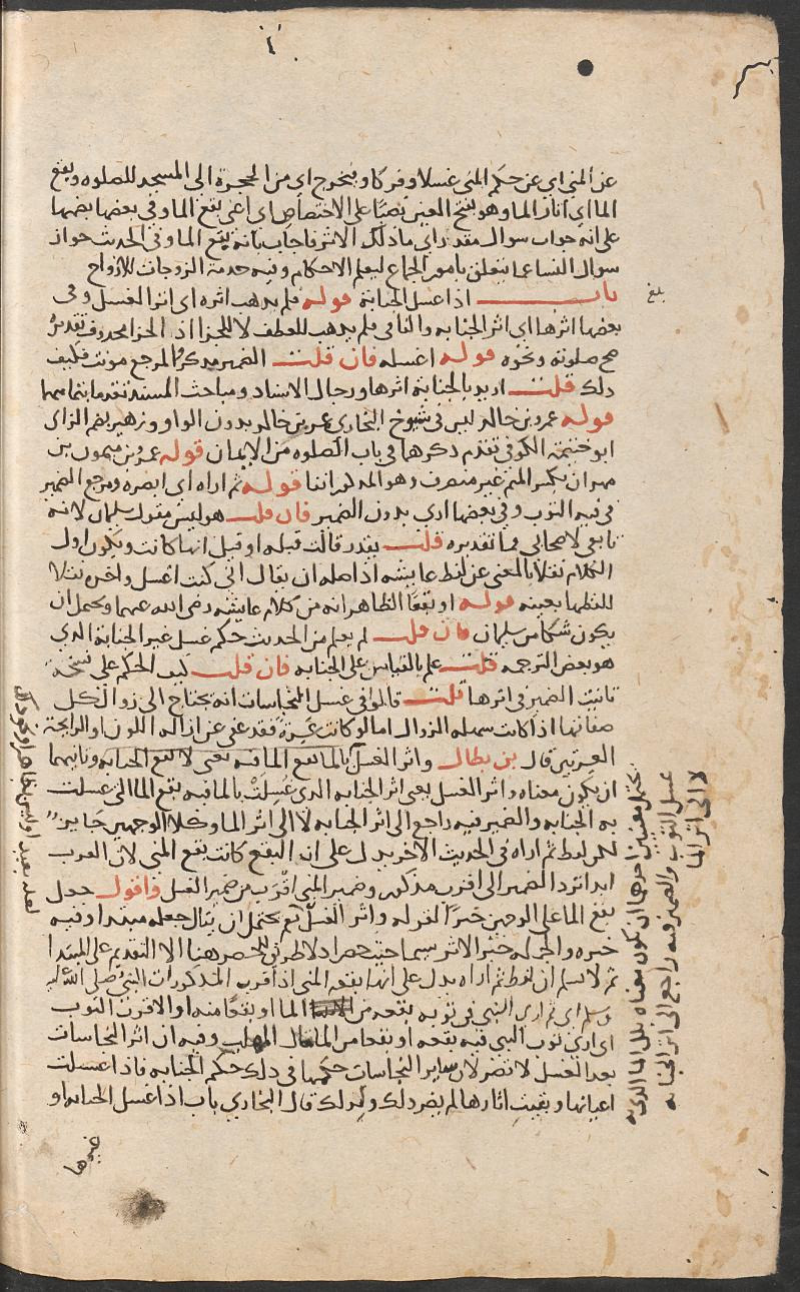 عن المني اي عن حكم المني غسلا وفركا و فيخرج اي من الحجرة الى المسجد للصلوه وبقع
الما اي اثار الما وهو بفتح العين نصبًا على الاختصاص اي اعني بقع الما وفي بعضها بضمها
على انه جواب سوال مقدر اي ما ذلك الاثر فاجاب بانه بقع الما وفي الحديث جواز
سوال النسا عما يتعلق بامور الجماع ليعلم الاحكام وفيه خدمة الزوجات للازواج
باب اذا غسل الجنابة قوله فلم يذهب اثره اي اثر الغسل وفي
بعضها اثرها اي اثر الجنابه والفا في فلم يذهب للعطف لا للجزا اذ الجزا محذوف تقديره
صح صلوته ونحوه قوله اغسله فان قلت الضمير مذكر والمرجع مونث فكيف
ذلك قلت اريد بالجنابة اثرها ورجال الاسناد ومباحث المسند تقدما بتمامهما
قوله عمرو بن خالد ليس في شيوخ البخاري عمر بن خالد بدون الواو و زهير بضم الزاي
ابو خيثمة الكوفي تقدم ذكرهما في باب الصلوه من الايمان قوله عمرو بن ميمون بن
مهران بكسر الميم غير منصرف وهو المذكور انفا قوله ثم اراه اي ابصره ومرجع الضمير
في فيه الثوب وفي بعضها ارى بدون الضمير فان قلت هو ليس مقول سليمان لانه
تابعي لا صحابي فما تقديره قلت يقدر قالت قبله او قبل انها كانت ويكون اول
الكلام نقلا بالمعنى عن لفظ عايشه اذ اصله ان يقال اني كنت اغسل واخره نقلا
للفظها بعينه قوله او بقعًا الظاهر انه من كلام عايشة رضي الله عنها ويحتمل ان
يكون شكا من سليمان فان قلت لم يعلم من الحديث حكم غسل غير الجنابة الذي
هو بعض الترجمه قلت علم بالقياس على الجنابه فان قلت كيف الحكم على نسخة
تانيث الضمير في اثرها قلت قالوا في غسل النجاسات انه يحتاج الى زوال كل
صفاتها اذا كانت سهلة الزوال اما لو كانت عسرة فقد عفي عن ازالة اللون او الرايحة
العسرتين قال بن بطال واثر الغسل بالما بقع الما فيه يعني لا بقع الجنابه وثانيهما
ان يكون معناه واثر الغسل يعني اثر الجنابه الذي غسلت بالما فيه بقع الما الذي غسلت
به الجنابه والضمير فيه راجع الى اثر الجنابه لا الى اثر الما وكلا الوجهين جايز
لكن لفظ ثم اراه في الحديث الاخر يدل على ان البقع كانت بقع المني لان العرب
ابدا ترد الضمير الى اقرب مذكور وضمير المني اقرب من ضمير الغسل واقول جعل
بقع الما على الوجهين خبرًا لقوله واثر الغسل نعم يحتمل ان يقال جعله مبتدا وفيه
خبره والجملة خبر الاثر سيما حيث حصر اذ لا طريق للحصر هنا الا التقديم على المبتدا
ثم لا نسلم ان لفظ ثم اراه يدل على انها بقعه المني اذ اقرب المذكورات النبي صلى الله عليه
وسلم اي ثم ارى النبي في ثوبه بقعه من الما او بقعًا منه او الاقرب الثوب
اي ارى ثوب النبي فيه بقعه او بقعا من الما قال المهلب وفيه ان اثر النجاسات
بعد الغسل لا تضر لان ساير النجاسات حكمها في ذلك حكم الجنابه فاذا غسلت
اعيانها وبقيت اثارها لم يضر ذلك ولذلك قال البخاري باب اذا غسل الجنابه او
غيرها
بلغ
يحتمل معنيين احدهما ان يكون معناه بلل الما الذي به
غسل الثوب والضمير فيه راجع الى اثر الجنابه
لا الى اثر الما